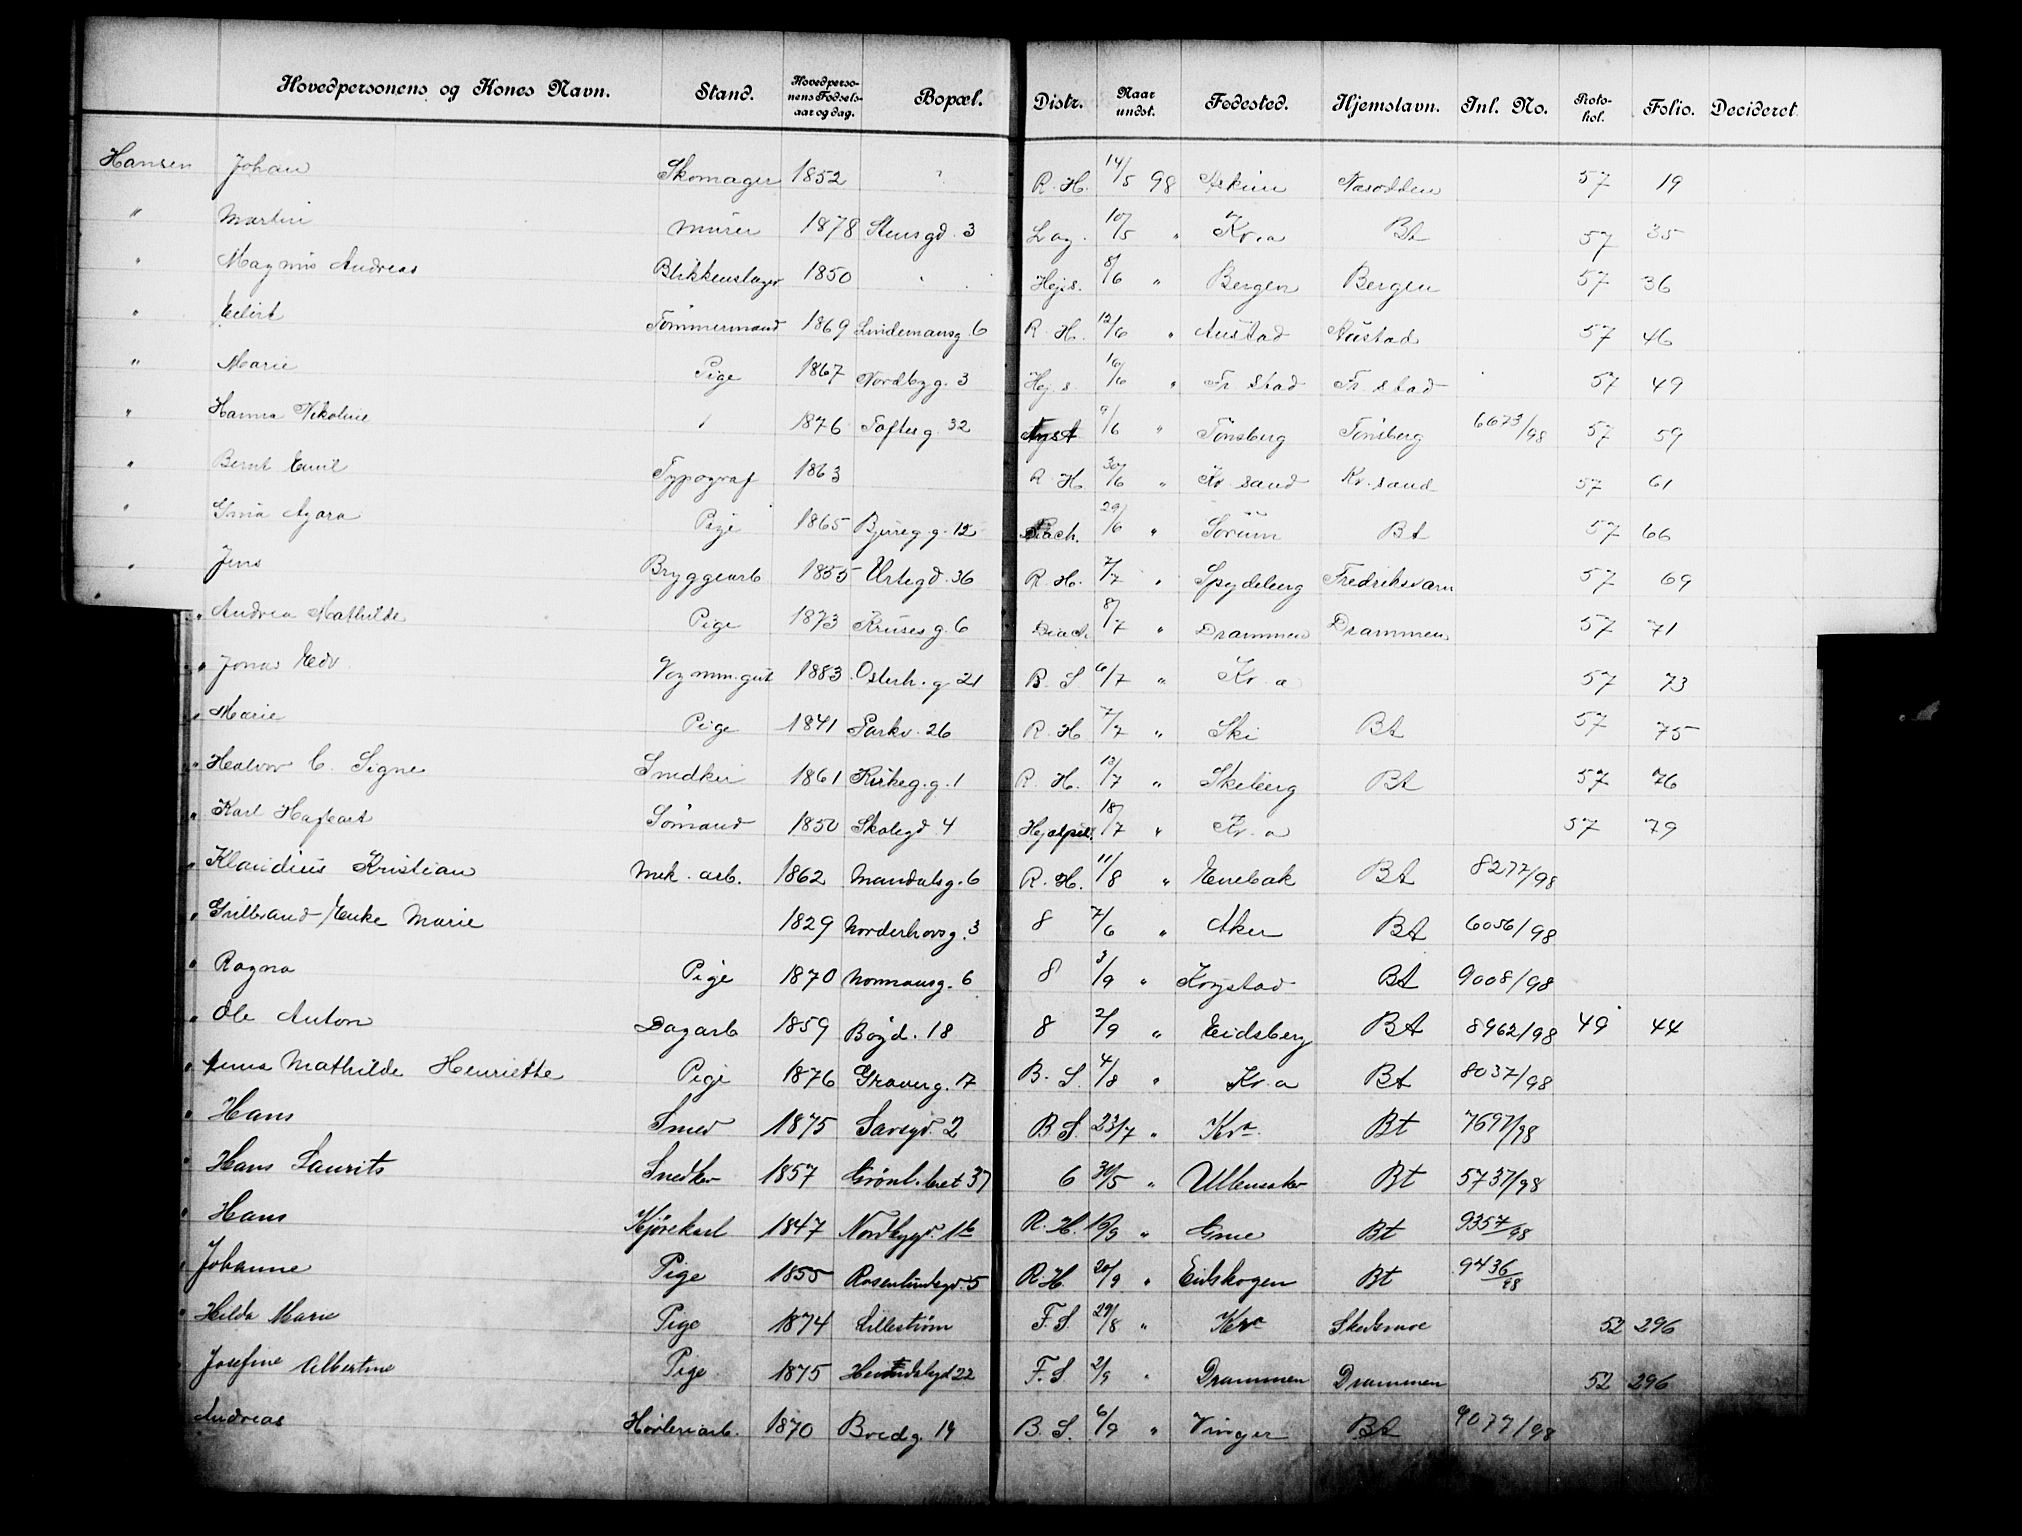 Hovedpersonens og Kones Navn. Stand. Hovedpersonens Fødsels-aar og dag. Bopæl. Distr. Naar undst. Fødested. Hjemstavn. Inl. No. Protokol. Folio. Decideret.
Hansen Johan Skomager 1852 " R. H. 14/5 98 Askim Næsodden 57 19
" Martin Murer 1878 Stensgd. 3 Lag. 10/5 " Kr.a Bt 57 35
" Magnus Andreas Blikkenslager 1850 " Hejs. 8/6 " Bergen Bergen 57 36
" Eilert Tømmermand 1869 Lindemansg. 6 R. H. 12/6 " Austad Austad 57 46
" Marie Pige 1867 Nordbyg. 3 Hej. s. 16/6 " Fr. stad Fr. stad 57 49
" Hanna Nikoline " 1876 Tofteg. 32 9/6 " Tönsberg Tönsberg 6673/98 57 59
" Bernt Emil Typograf 1863 R. H 30/6 " Kr. sand Kr. sand 57 61
" Gina Agara Pige 1865 Bjerreg.g. 12 Diach. 29/6 " Sörum Bt 57 66
" Jens Bryggearb 1855 Urtegd. 36 R. H. 7/7 " Spydeberg Fredriksværn 57 69
" Andrea Mathilde Pige 1873 Kruses g. 6 Diach. 8/7 " Drammen Drammen 57 71
" Jonas Edv. Vognm. gut 1883 Osterh. g. 21 B. S 6/7 " Kr. a 57 73
" Marie Pige 1841 Parkv. 26 R. H 7/7 " Ski Bt 57 75
" Halvor C. Signe Snedker 1861 Kirkeg. g. 1 R. H. 13/7 " Skiberg Bt 57 76
" Karl Hagbart Sömand 1850 Skolegd 4 Hjælpsl. 18/7 " Kr. a 57 79
" Klaudius Kristian Mek. arb. 1862 Mandalsg. 6 R. H. 11/8 " Enebak Bt 8277/98
" Gulbrand Enke Marie 1829 Norderhovsg. 3 8 7/6 " Aker Bt 6056/98
" Ragna Pige 1870 Normansg. 6 8 3/9 " Krystad Bt 9008/98
" Ole Anton Dagarb 1859 Bogd. 18 8 2/9 " Eidsberg Bt 8962/98 49 44
" Anna Mathilde Henriette Pige 1876 Graverg. 17 B. S. 4/8 " Kr. a Bt 8037/98
" Hans Smed 1875 Sarsgd. 2 B S. 23/7 " Kra. Bt 7697/98
" Hans Laurits Snedker 1857 Grönl. leret 37 6 30/5 " Ullensaker Bt 5737/98
" Hans Kjörekarl 1847 Nordbygd. 1b R. H. 16/9 " Grue Bt 9357/98
" Johanne Pige 1855 Rosenlundsgd. 5 R. H 20/9 " Eidskogen Bt 9436/98
" Hilda Marie Pige 1874 Lilleström F. S. 29/8 " Kra Skedsmoe 52 296
" Josefine Albertine Pige 1875 22 F. S. 2/9 " Drammen Drammen 52 296
Andreas Høvleriarb. 1870 Bredg. 14 B. S. 6/9 " Vinger Bt 9077/98